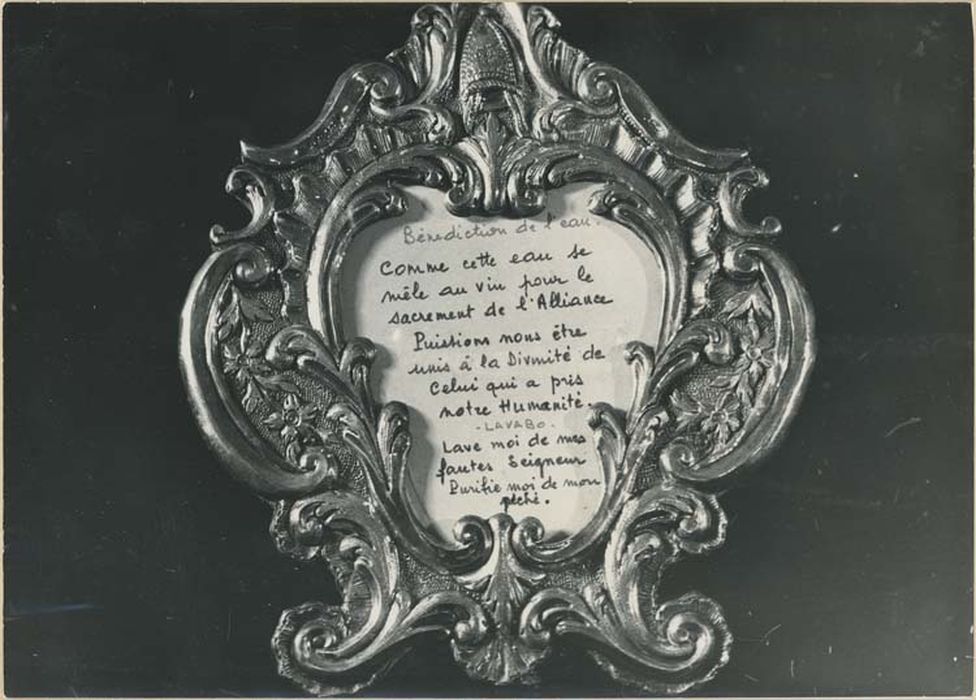 Bénédiction de l'eau.
Comme cette eau se
mêle au vin pour le
sacrement de l'Alliance
Puissions nous être
unis à la Divinité de
Celui qui a pris
notre Humanité.
- LAVABO -
Lave moi de mes
fautes Seigneur
Purifie moi de mon
péché.